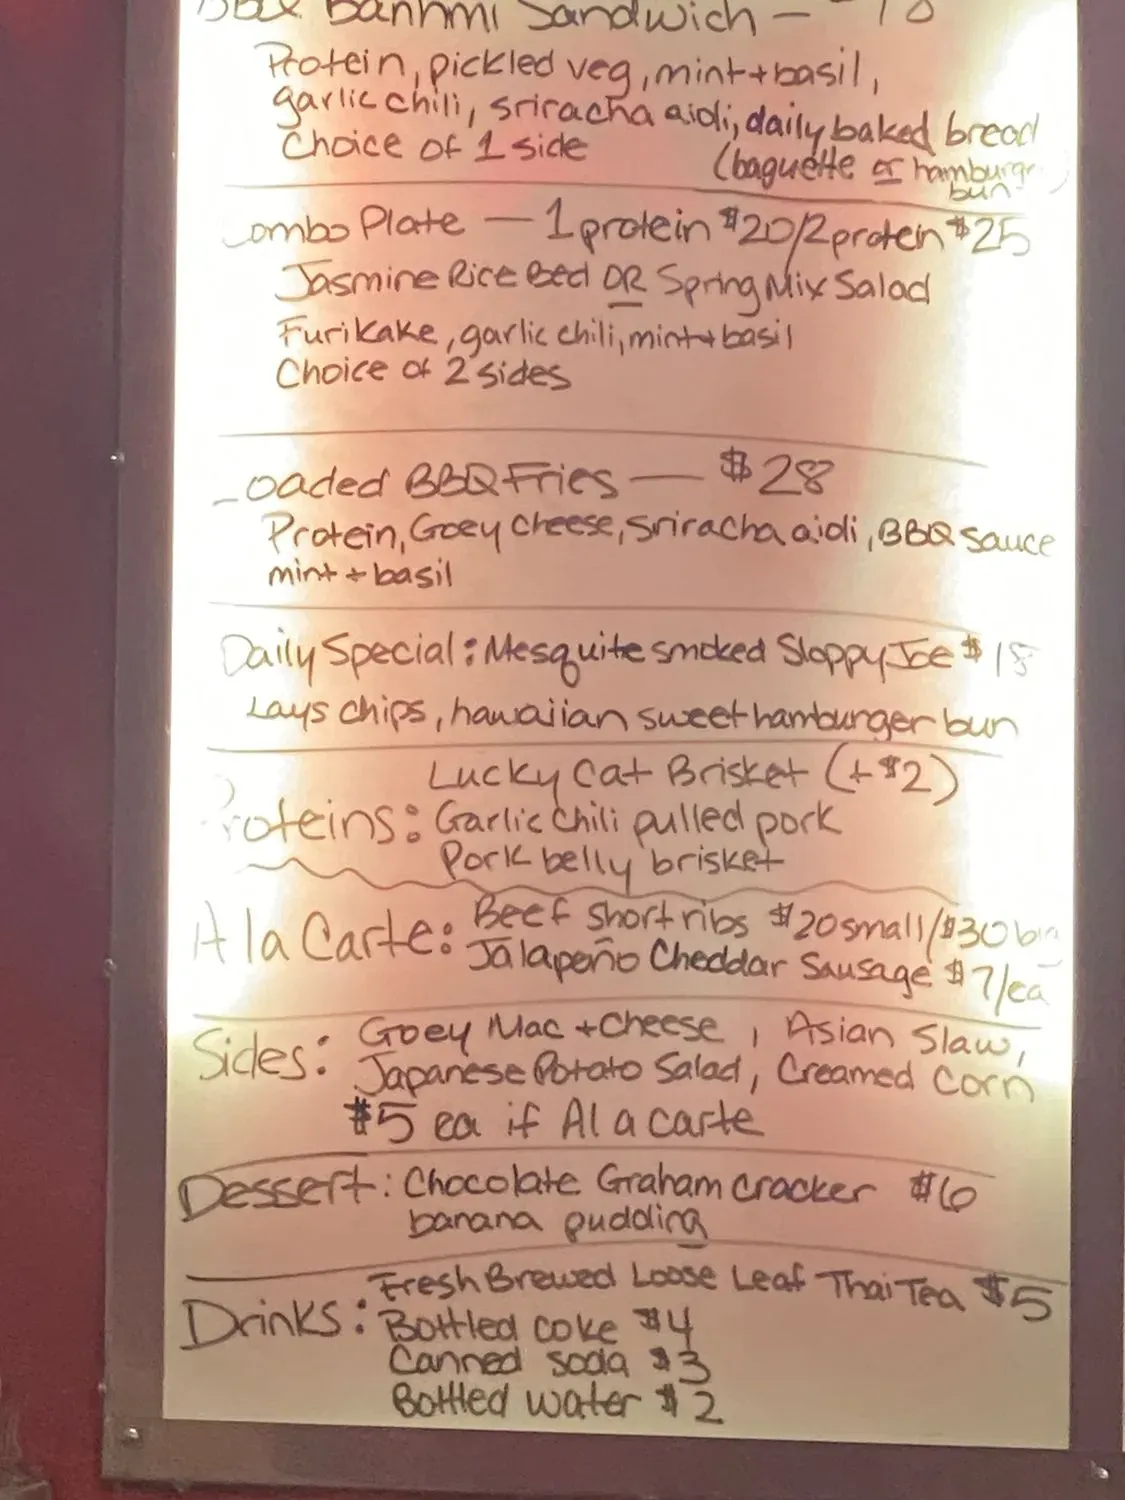 BBQ Banhmi Sandwich —
Protein, pickled veg, mint + basil,
garlic chili, sriracha aioli, daily baked bread
Choice of 1 side (baguette or hamburger
bun)
Combo Plate — 1 protein $20/2 protein $25
Jasmine Rice Bed OR Spring Mix Salad
Furikake, garlic chili, mint + basil
Choice of 2 sides
Loaded BBQ Fries — $28
Protein, Goey Cheese, sriracha aioli, BBQ sauce
mint + basil
Daily Special: Mesquite smoked Sloppy Joe $18
Lays chips, hawaiian sweet hamburger bun
Lucky Cat Brisket (+$2)
Proteins: Garlic Chili pulled pork
Pork belly brisket
A la Carte: Beef short ribs $20 small/$30 big
Jalapeño Cheddar Sausage $7/ea
Sides: Goey Mac + Cheese, Asian Slaw,
Japanese Potato Salad, Creamed Corn
$5 ea if Al a carte
Dessert: Chocolate Graham cracker $6
banana pudding
Fresh Brewed Loose Leaf Thai Tea $5
Drinks: Bottled coke $4
Canned soda $3
Bottled water $2